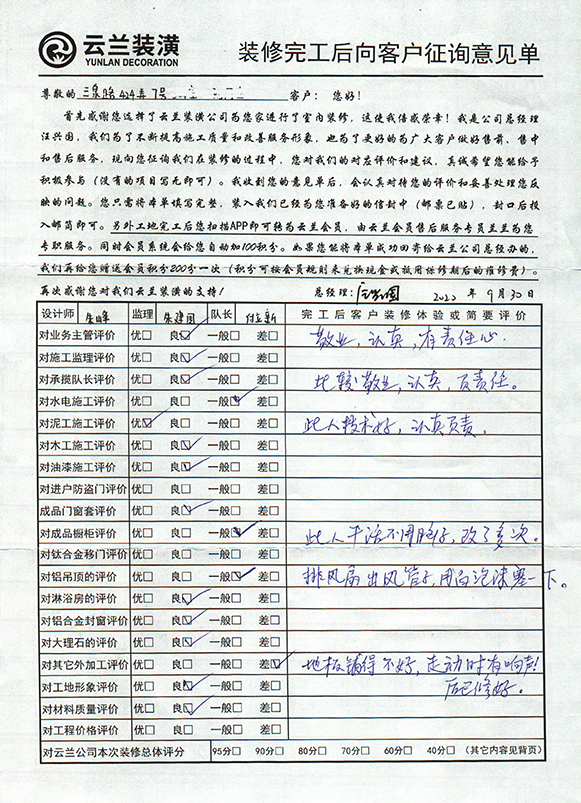 云兰装潢
YUNLAN DECORATION
装修完工后向客户征询意见单
尊敬的 三泉路424弄7号 客户: 您好!
首先感谢您选择了云兰装潢公司为您家进行了室内装修,这使我倍感荣幸!我是公司总经理
汪兴国,我们为了不断提高施工质量和改善服务形象,也为了更好的为广大客户做好售前、售中
和售后服务,现向您征询我们在装修的过程中,您对我们的对应评价和建议,真诚希望您能给予
积极参与(没有的项目写无即可)。我收到您的意见单后,会认真对待您的评价和妥善处理您反
映的问题。您只需将本单填写完整,装入我们已经为您准备好的信封中(邮票已贴),封口后投
入邮筒即可。另外工地完工后您扫描APP即可转为云兰会员,由云兰会员售后服务专员兰兰为您
专职服务。同时会员系统会给您自动加100积分。如果您能将本单成功回寄给云兰公司总经办的,
我们再给您赠送会员积分200分一次(积分可按会员规则来兑换现金或抵用保修期后的维修费)。
再次感谢您对我们云兰装潢的支持! 总经理: 2020 年 9月30日
设计师 朱峰 监理 朱建国 队长 付立新 完工后客户装修体验或简要评价
对业务主管评价 优□ 良☑ 一般□ 差□ 敬业,认真,有责任心.
对施工监理评价 优□ 良☑ 一般□ 差□
对承揽队长评价 优□ 良☑ 一般□ 差□ 比较敬业,认真,负责任。
对水电施工评价 优□ 良□ 一般☑ 差□
对泥工施工评价 优☑ 良□ 一般□ 差□ 此人技术好,认真负责.
对木工施工评价 优□ 良☑ 一般□ 差□
对油漆施工评价 优□ 良☑ 一般□ 差□
对进户防盗门评价 优□ 良□ 一般□ 差□
成品门窗套评价 优□ 良☑ 一般□ 差□
对成品橱柜评价 优□ 良□ 一般☑ 差□ 此人干活不用脑子,改了多次。
对钛合金移门评价 优□ 良□ 一般□ 差□
对铝吊顶的评价 优□ 良□ 一般☑ 差□ 排风扇出风管子,用白泡沫塞一下。
对淋浴房的评价 优□ 良☑ 一般□ 差□
对铝合金封窗评价 优□ 良☑ 一般□ 差□
对大理石的评价 优□ 良☑ 一般□ 差□
对其它外加工评价 优□ 良□ 一般□ 差☑ 地板铺得不好,走动时有响声!
后已修好。
对工地形象评价 优□ 良☑ 一般□ 差□
对材料质量评价 优□ 良☑ 一般□ 差□
对工程价格评价 优□ 良□ 一般□ 差□
对云兰公司本次装修总体评分 95分□ 90分□ 80分□ 70分□ 60分□ 40分□ (其它内容见背页)